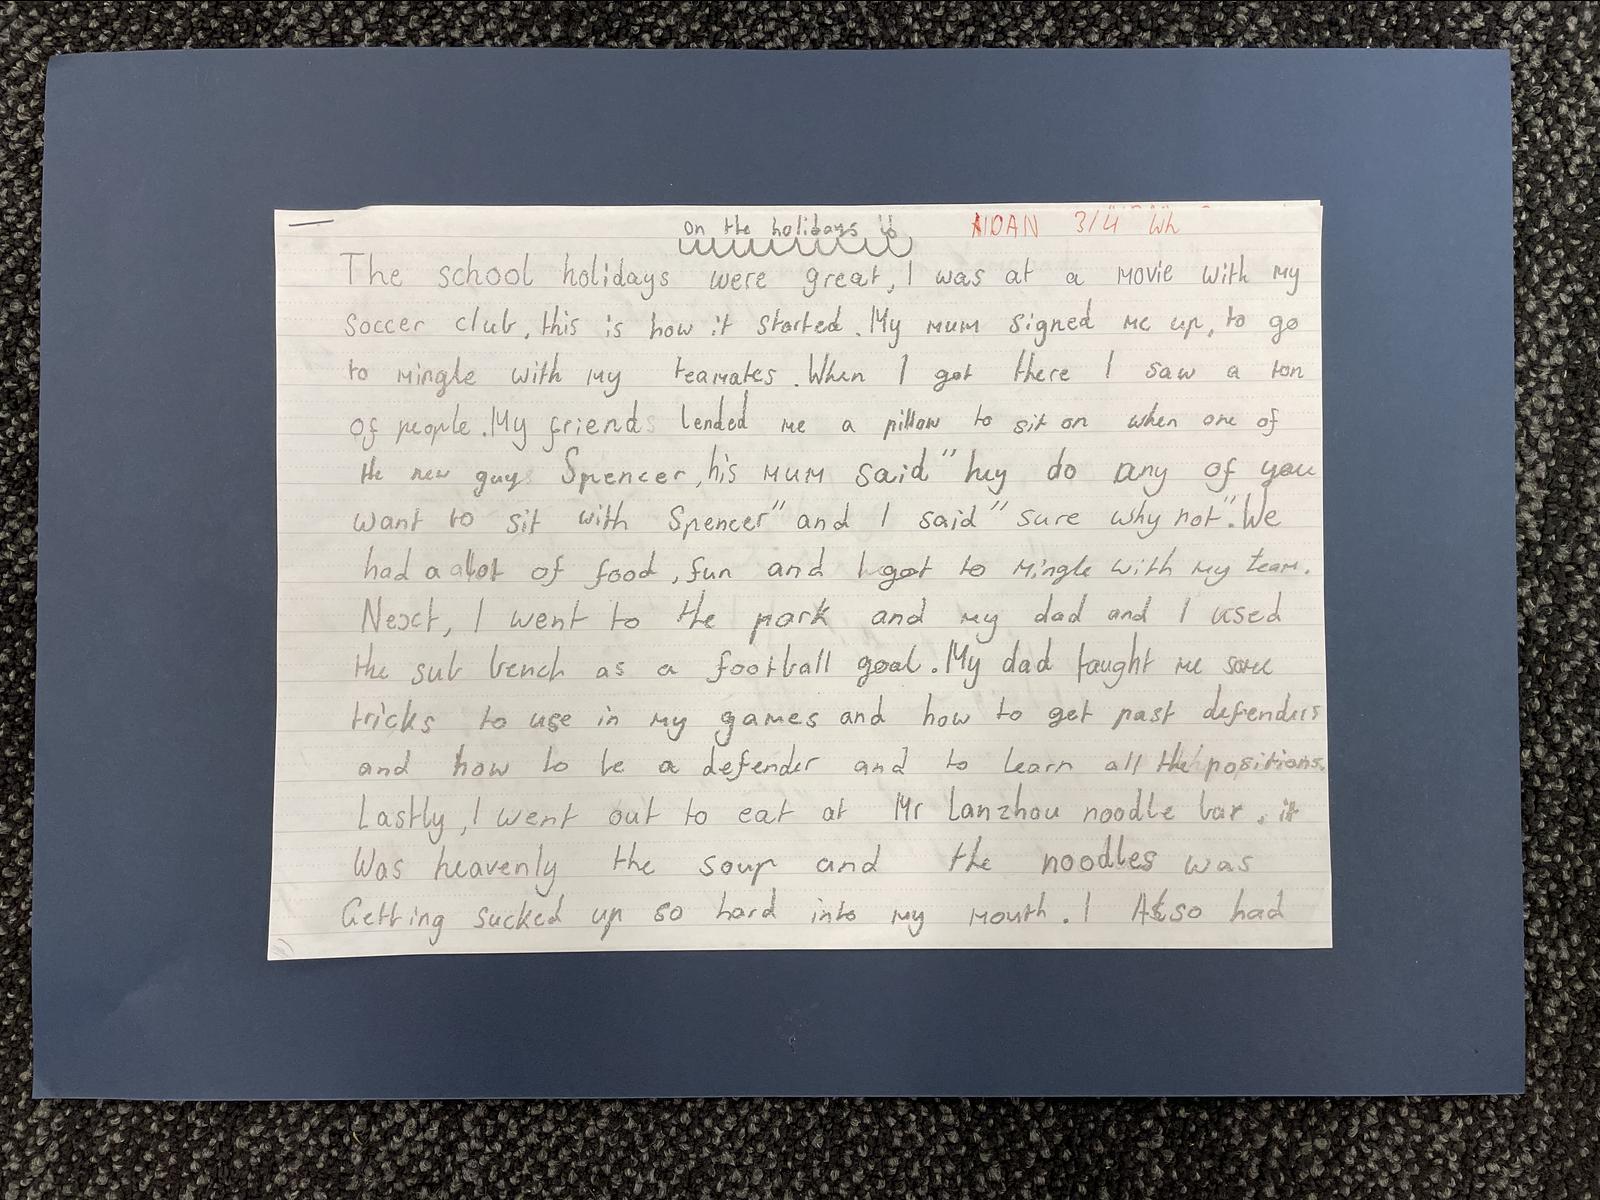 On the holidays
AIDAN 3/4 Wh
The school holidays were great, I was at a movie with my
soccer club, this is how it started. My mum signed me up, to go
to mingle with my teamates. When I got there I saw a ton
of people. My friends lended me a pillow to sit on when one of
the new guys Spencer, his mum said "hey do any of you
want to sit with Spencer" and I said "sure why not". We
had a alot of food, fun and I got to mingle with my team.
Next, I went to the park and my dad and I used
the sub bench as a football goal. My dad taught me some
tricks to use in my games and how to get past defenders
and how to be a defender and to learn all the positions.
Lastly, I went out to eat at Mr Lanzhou noodle bar, it
Was heavenly the soup and the noodles was
Getting sucked up so hard into my mouth. I Also had